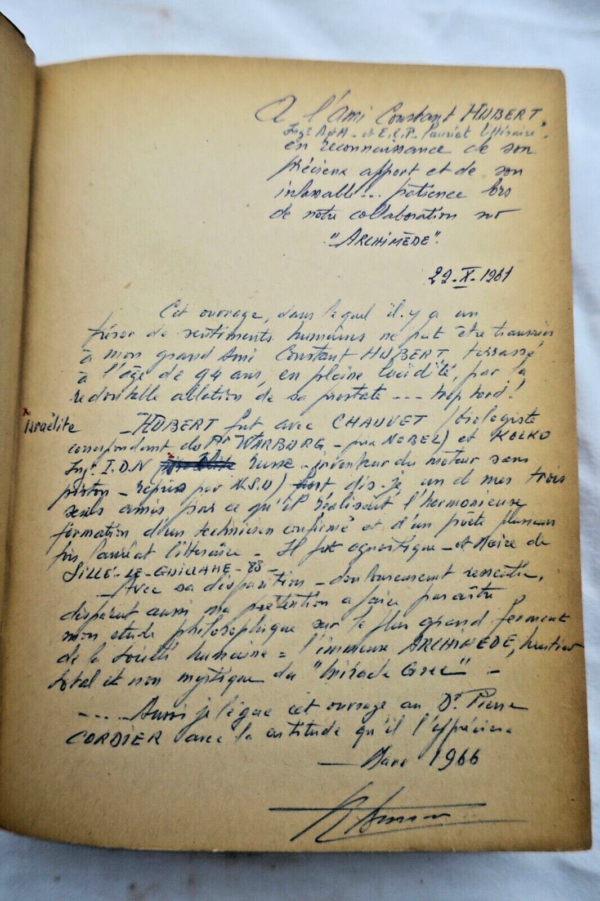 A l'Ami Constant HUBERT.
Ingr A&M - et E.C.P. lauréat littéraire.
en reconnaissance de son
précieux apport et de son
patience lors
de notre collaboration sur
"ARCHIMÈDE".
22-X-1961
Cet ouvrage, dans lequel il y a un
trésor de sentiments humains ne put être transmis
à mon grand Ami Constant HUBERT, terrassé
à l'âge de 94 ans, en pleine lucidité, par la
redoutable ablation de sa prostate --- trop tard!
Israélite - HUBERT fut avec CHAUVET (biologiste
correspondant du Pr WARBURG - prix NOBEL) et
Ingr I.D.N russe - inventeur du moteur sans
piston - repris par N.S.U) dis-je un de mes trois
seuls amis par ce qu'il réalisait l'harmonieuse
formation d'un technicien confirmé et d'un poète plusieurs
fois lauréat littéraire - Il fut agnostique - et Maire de
SILLÉ-LE-GUILLAUME
- Avec sa disparition - douloureusement ressentie,
disparut aussi ma prétention à faire paraître
mon étude philosophique sur le plus grand ferment
de la Société humaine = l'immense ARCHIMÈDE, héritier
total et non mystique du "miracle Grec" -
---- Aussi je lègue cet ouvrage au Dr Pierre
CORDIER avec la certitude qu'il l'appréciera
- Mars 1966